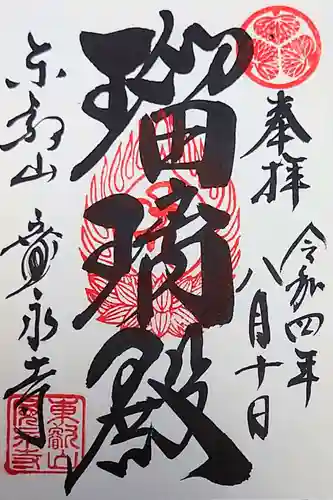 奉拝
令和四年
八月十日
瑠璃殿
东叡山 寛永寺
東叡山
寛永寺